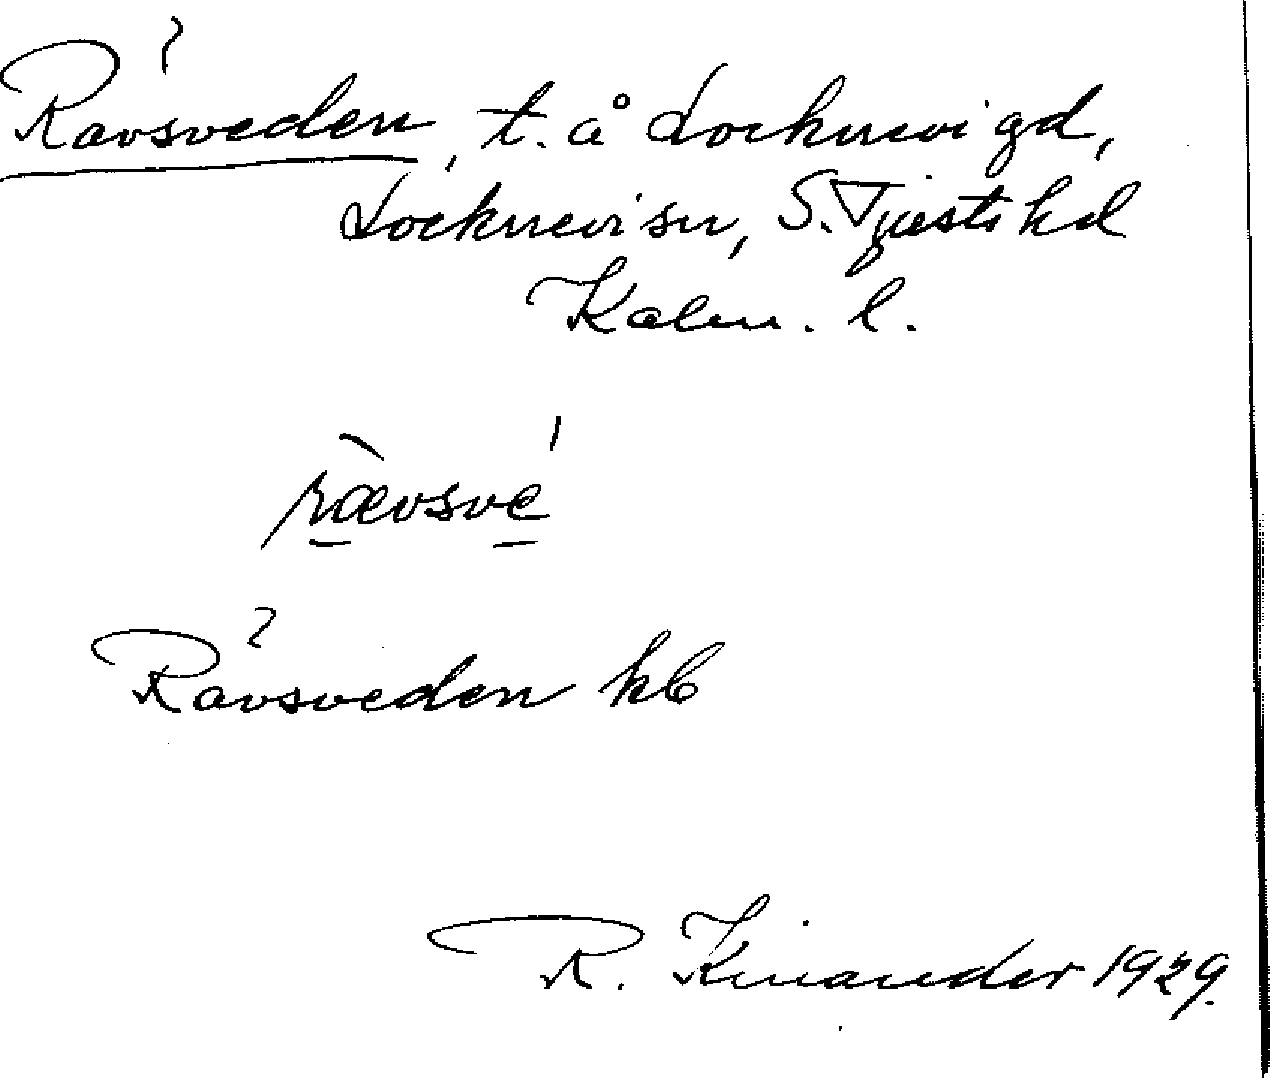 Rävsveden, t. å Locknevi gd,
Locknevi sn, S. Tjusts hd
Kalm. l.
rævsvé
Rävsveden kb
R. Kinander 1929.